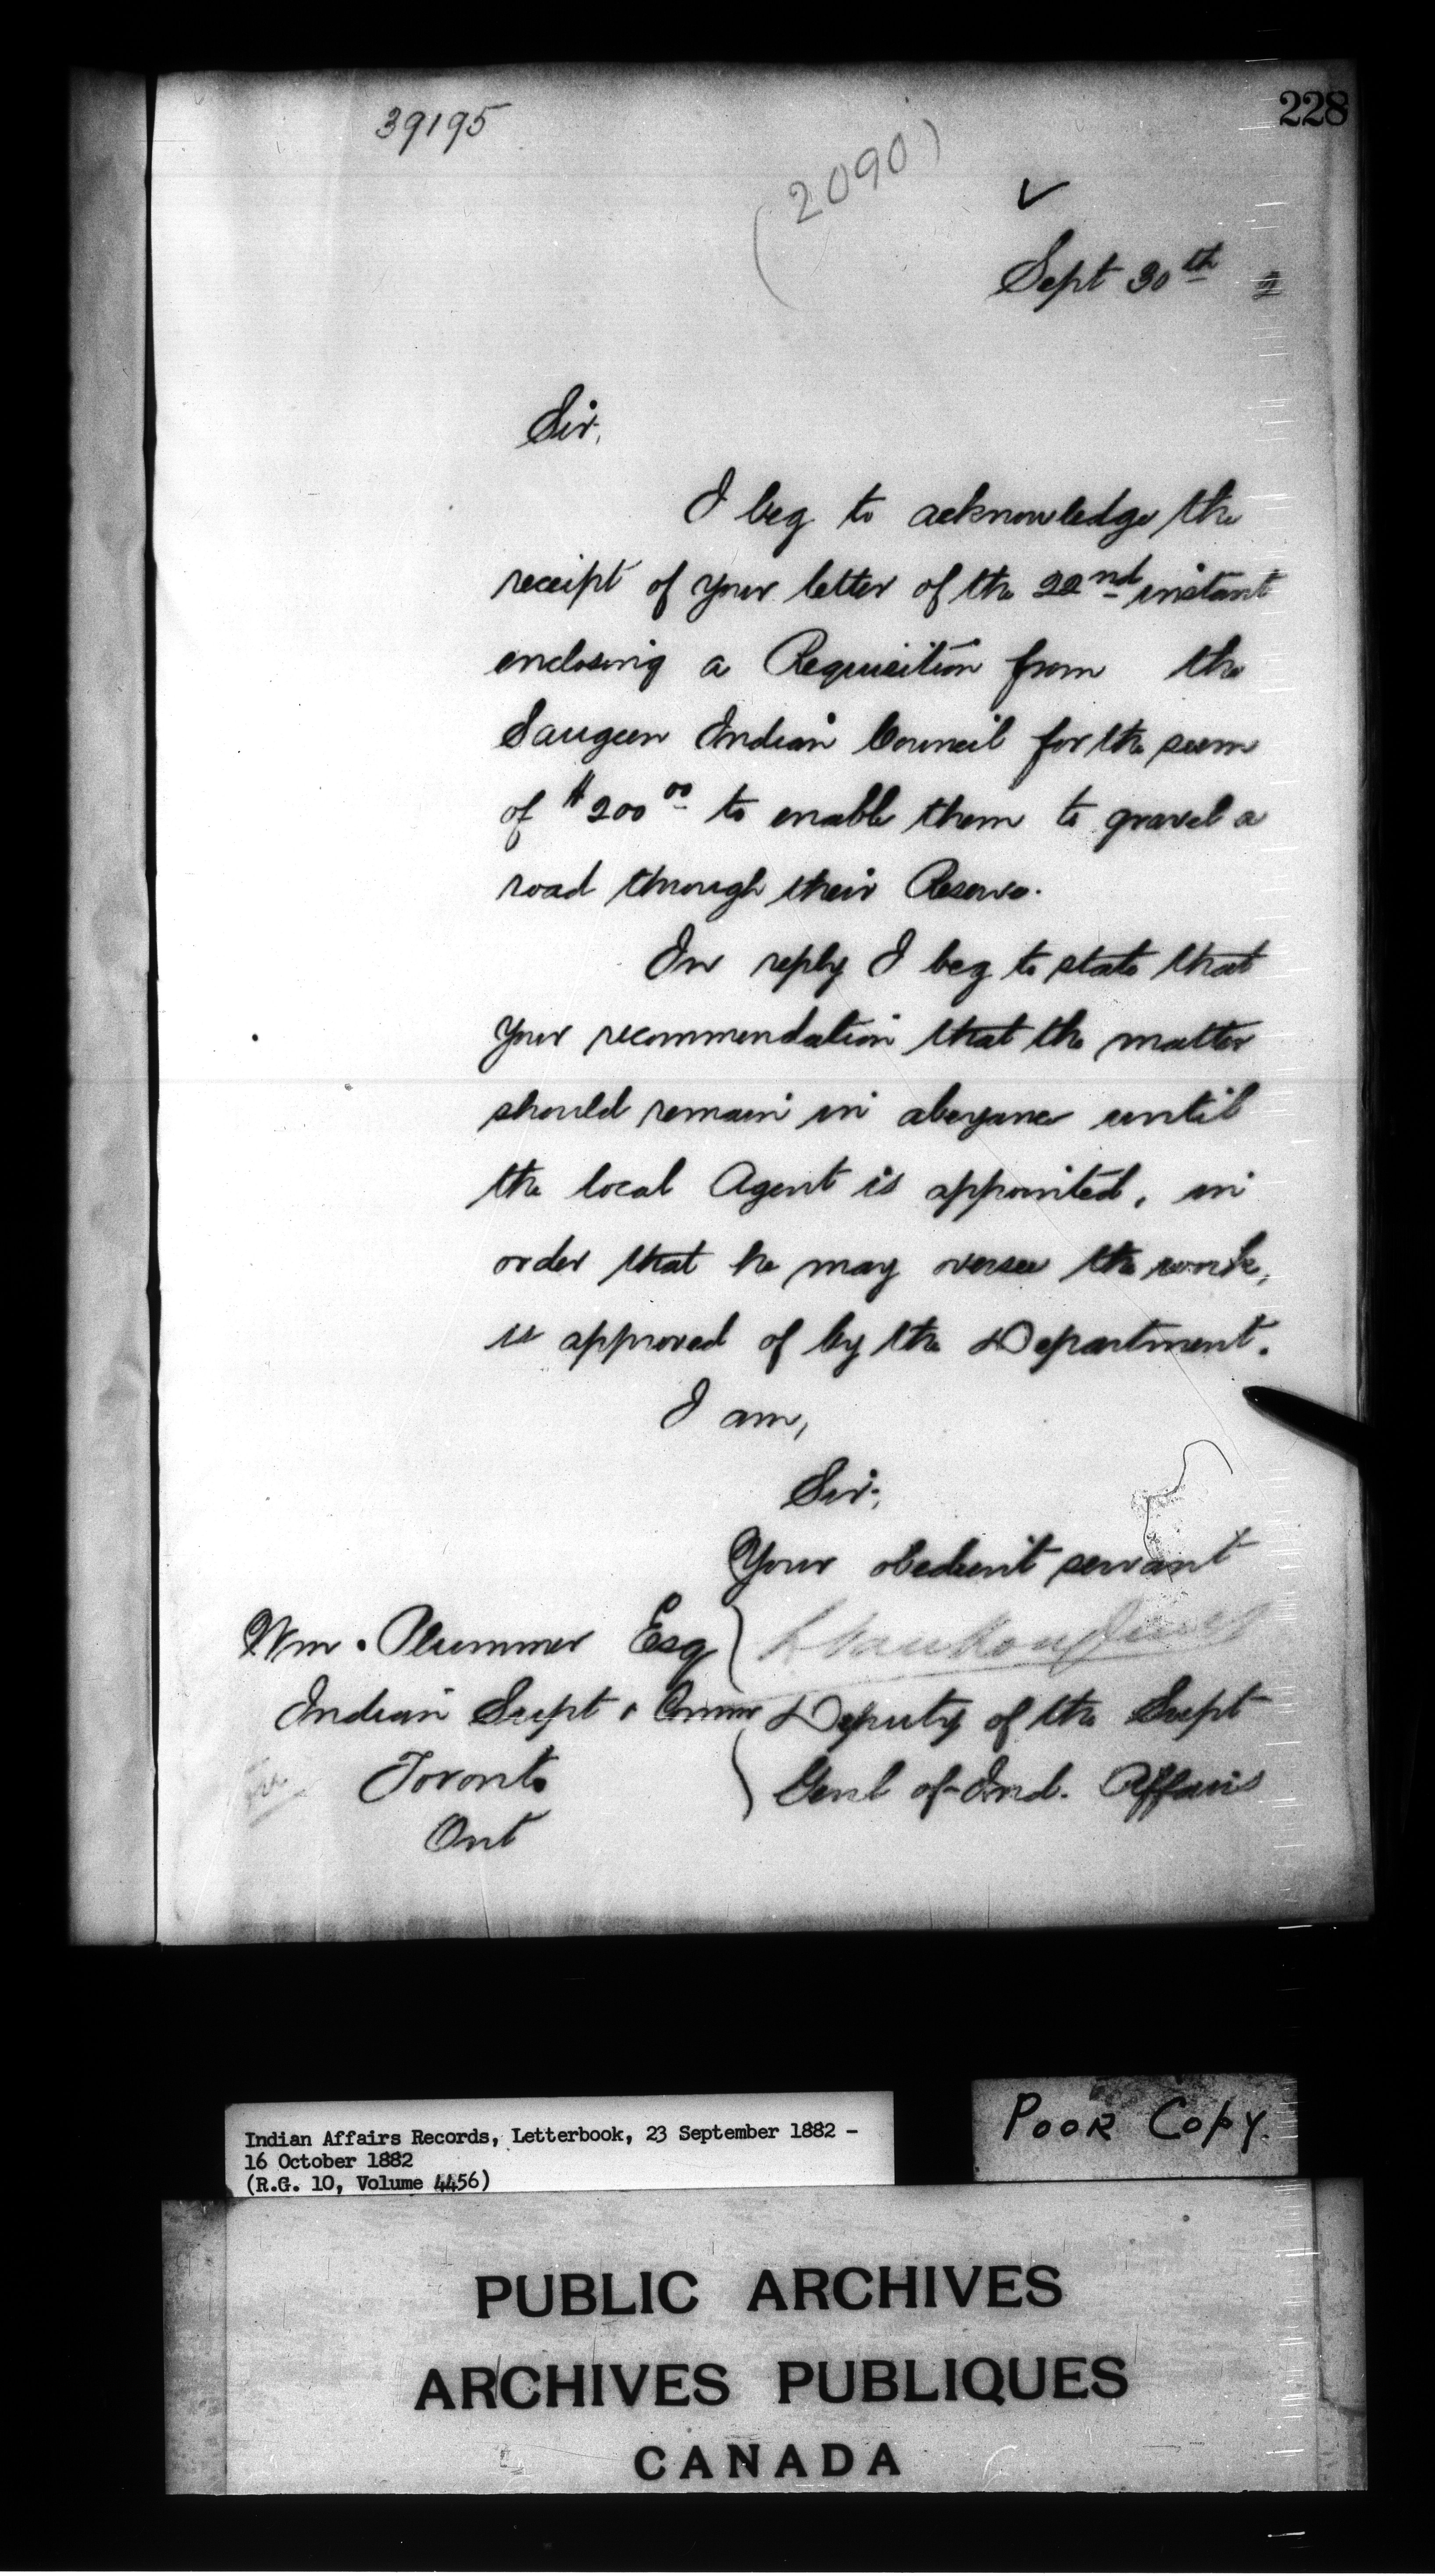 39195
228
(2090)
Sept 30th 2
Sir,
I beg to acknowledge the
receipt of your letter of the 22nd instant
enclosing a Requisition from the
Saugeen Indian Council for the sum
of $200 00 to enable them to gravel a
road through their Reserve.
In reply I beg to state that
your recommendation that the matter
should remain in abeyance until
the local Agent is appointed, in
order that he may oversee the work,
is approved of by the Department.
I am,
Sir,
Your obedient servant
Wm. Plummer Esq
L VanKoughnet
Indian Supt & Commr
Deputy of the Supt
Toronto
Genl of Ind. Affairs
Ont
Indian Affairs Records, Letterbook, 23 September 1882 -
16 October 1882
(R.G. 10, Volume 4456)
POOR COPY.
PUBLIC ARCHIVES
ARCHIVES PUBLIQUES
CANADA